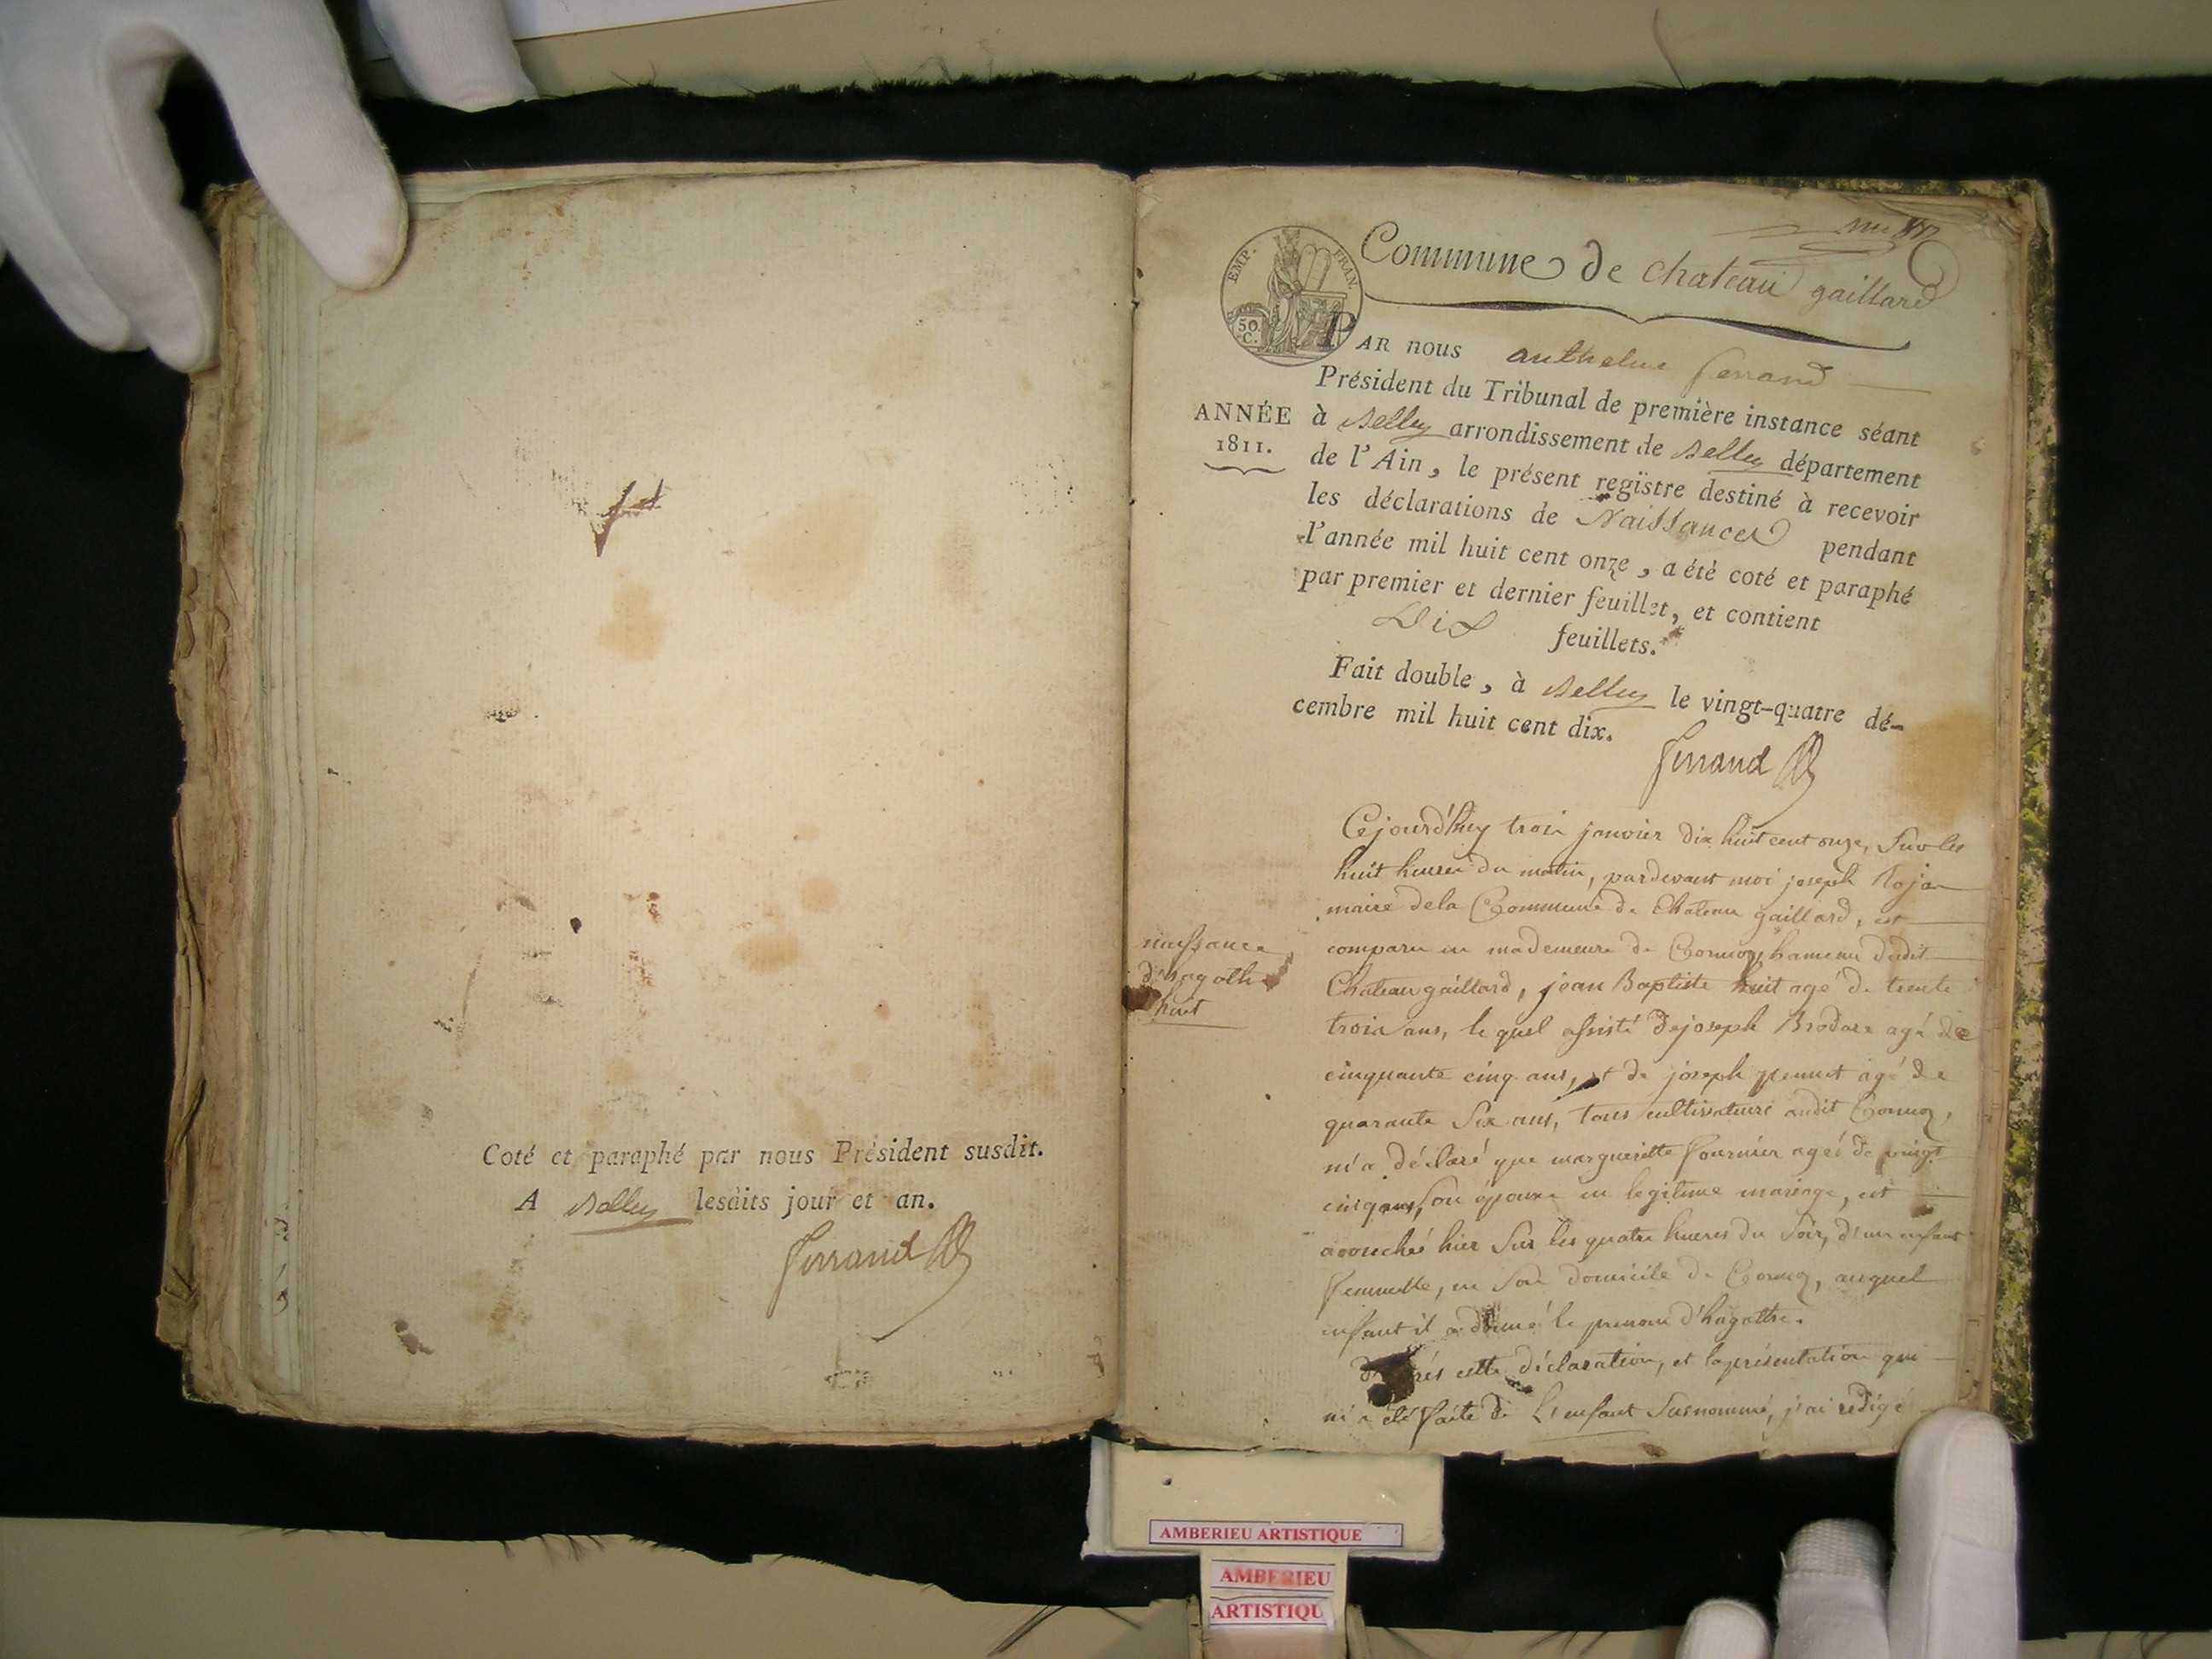 Coté et paraphé par nous Président susdit.
A Belley lesdits jour et an.
Ferrand
Commune de chateau gaillard
EMP. FRAN.
50. C.
PAR nous anthelme ferrand
Président du Tribunal de première instance séant
ANNÉE 1811.
à Belley arrondissement de Belley département
de l'Ain, le présent registre destiné à recevoir
les déclarations de Naissances pendant
l'année mil huit cent onze, a été coté et paraphé
par premier et dernier feuillet, et contient
Dix feuillets.
Fait double, à Belley le vingt-quatre dé-
cembre mil huit cent dix.
Ferrand
Cejourd'huy trois janvier dix huit cent onze, Sur les
huit heures du matin, pardevant moi joseph
maire dela Commune de Chateau gaillard, est
naissance
d'hagathe
huit
comparu en mademeure de Cormoz, hameau dudit
Chateaugaillard, jean Baptiste huit agé de trente
trois ans, le quel assisté de joseph Brodare agé de
cinquante cinq ans, et de joseph pennet agé de
quarante Six ans, tous cultivateurs audit Cormoz,
m'a déclaré que margueritte fournier agée de vingt
cinq ans, Son épouse en legitime mariage, est
accouchée hier Sur les quatre heures du Soir, d'un enfant
femmelle, en Son domicile de Cormoz, auquel
enfant il a donné le prenom d'hagathe.
d'après cette déclaration, et la présentation qui
m'a été faite de L'enfant Susnommé, j'ai rédigé
AMBERIEU ARTISTIQUE
AMBERIEU
ARTISTIQU